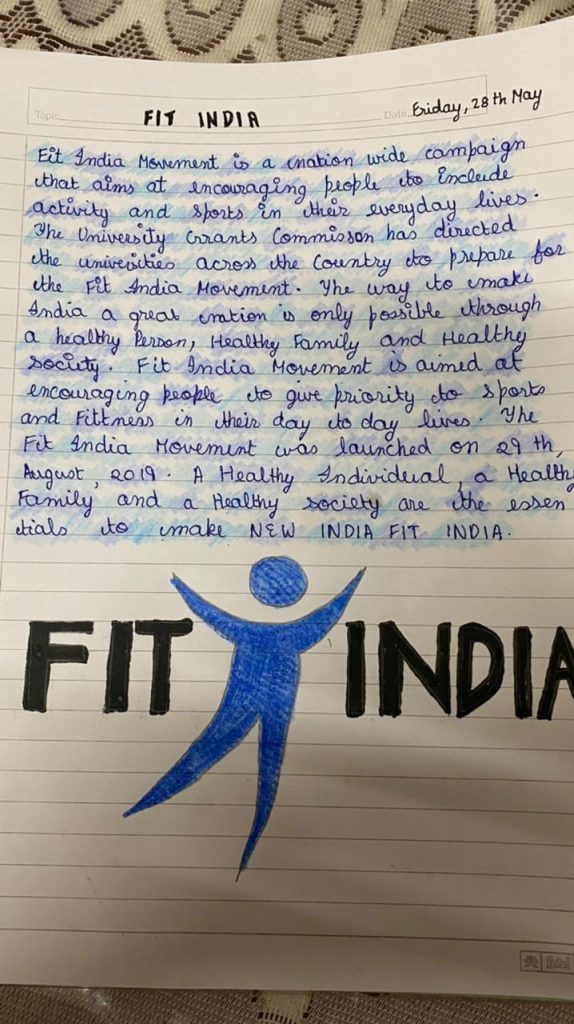 Topic FIT INDIA Date Friday, 28th May
Fit India Movement is a nation wide campaign
that aims at encouraging people to Include
activity and sports in their everyday lives.
The University Grants Commisson has directed
the universities across the Country to prepare for
the Fit India Movement. The way to make
India a great nation is only possible through
a healthy Person, Healthy Family and Healthy
society. Fit India Movement is aimed at
encouraging people to give priority to sports
and Fittness in their day to day lives. The
Fit India Movement was launched on 29 th,
August, 2019. A Healthy Individual, a Healthy
Family and a Healthy society are the essen
tials to make NEW INDIA FIT INDIA.
FIT INDIA